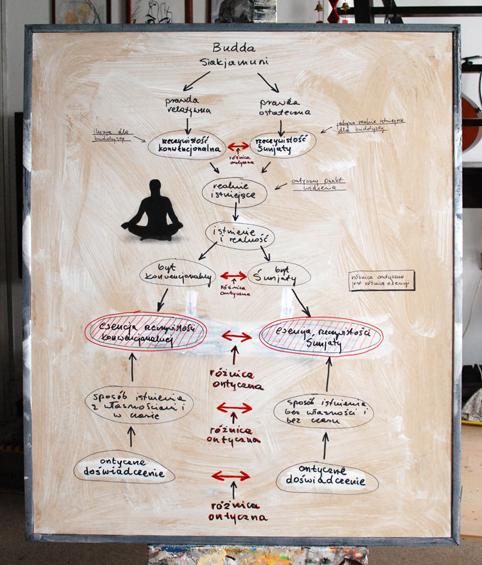 Budda
Siakjamuni
prawda
relatywna
prawda
ostateczna
iluzja dla
buddysty
rzeczywistość
konwencjonalna
różnica
ontyczna
rzeczywistość
Śunjaty
jedynie realnie istniejące
dla buddysty
realnie
istniejące
ontyczny punkt
widzenia
istnienie
i realność
byt
konwencjonalny
różnica
ontyczna
byt
Śunjaty
różnica ontyczna
jest różnicą
esencja rzeczywistości
konwencjonalnej
esencja rzeczywistości
Śunjaty
różnica
ontyczna
sposób istnienia
z własnościami i
w czasie
różnica
ontyczna
sposób istnienia
bez własności i
bez czasu
ontyczne
doświadczenie
ontyczne
doświadczenie
różnica
ontyczna